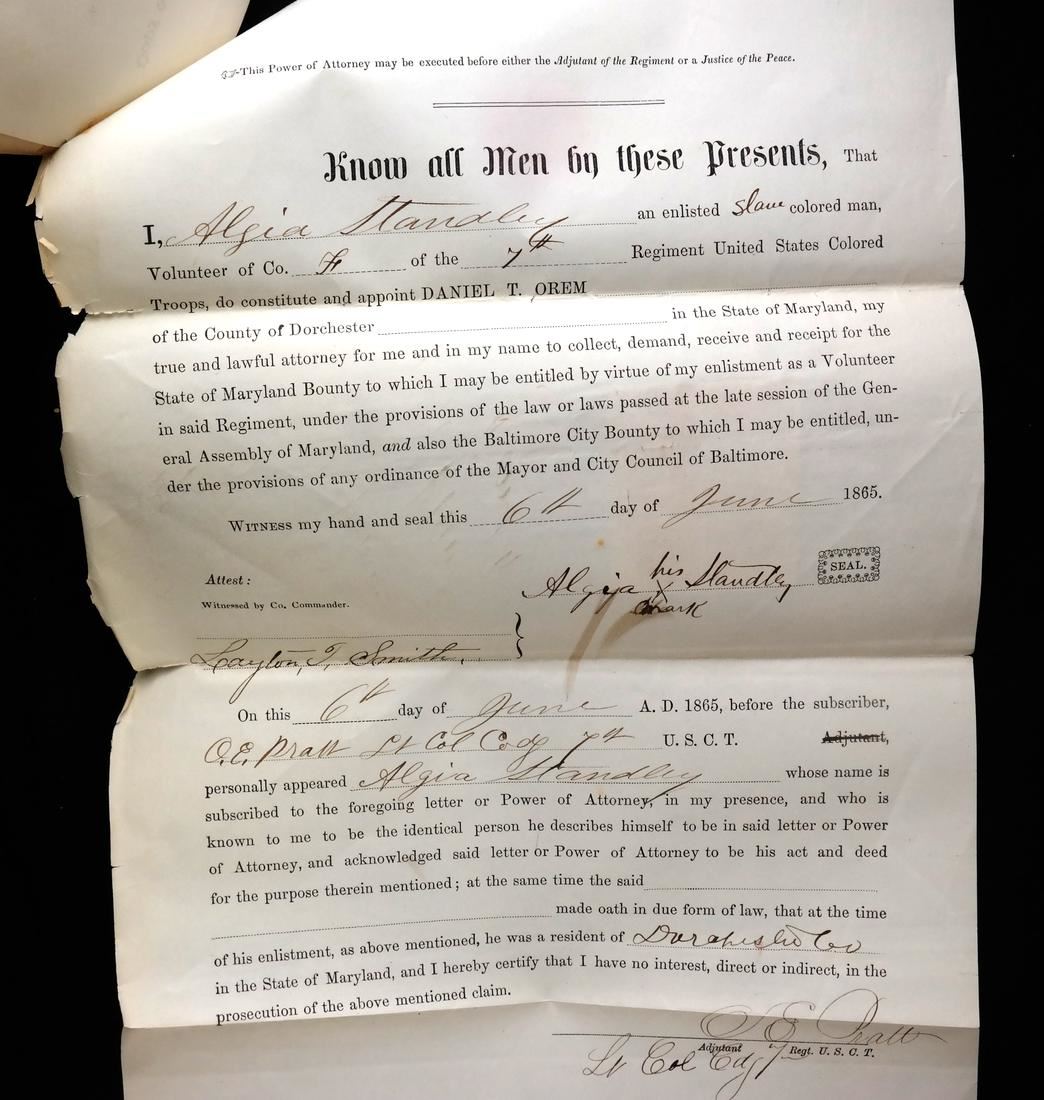 ☞This Power of Attorney may be executed before either the Adjutant of the Regiment or a Justice of the Peace.
Know all Men by these Presents, That
I, Algia Standley an enlisted slave colored man,
Volunteer of Co. F of the 7th Regiment United States Colored
Troops, do constitute and appoint DANIEL T. OREM
of the County of Dorchester in the State of Maryland, my
true and lawful attorney for me and in my name to collect, demand, receive and receipt for the
State of Maryland Bounty to which I may be entitled by virtue of my enlistment as a Volunteer
in said Regiment, under the provisions of the law or laws passed at the late session of the Gen-
eral Assembly of Maryland, and also the Baltimore City Bounty to which I may be entitled, un-
der the provisions of any ordinance of the Mayor and City Council of Baltimore.
WITNESS my hand and seal this 6th day of June 1865.
Attest:
Algia his X mark Standley SEAL.
Witnessed by Co. Commander.
Layton, T, Smith,
On this 6th day of June A. D. 1865, before the subscriber,
O.E. Pratt Lt Col Codg 7th U. S. C. T. Adjutant,
personally appeared Algia Standley whose name is
subscribed to the foregoing letter or Power of Attorney, in my presence, and who is
known to me to be the identical person he describes himself to be in said letter or Power
of Attorney, and acknowledged said letter or Power of Attorney to be his act and deed
for the purpose therein mentioned; at the same time the said
made oath in due form of law, that at the time
of his enlistment, as above mentioned, he was a resident of Dorchester Co
in the State of Maryland, and I hereby certify that I have no interest, direct or indirect, in the
prosecution of the above mentioned claim.
O E Pratt
Adjutant 7 Regt. U. S. C. T.
Lt Col Cdg